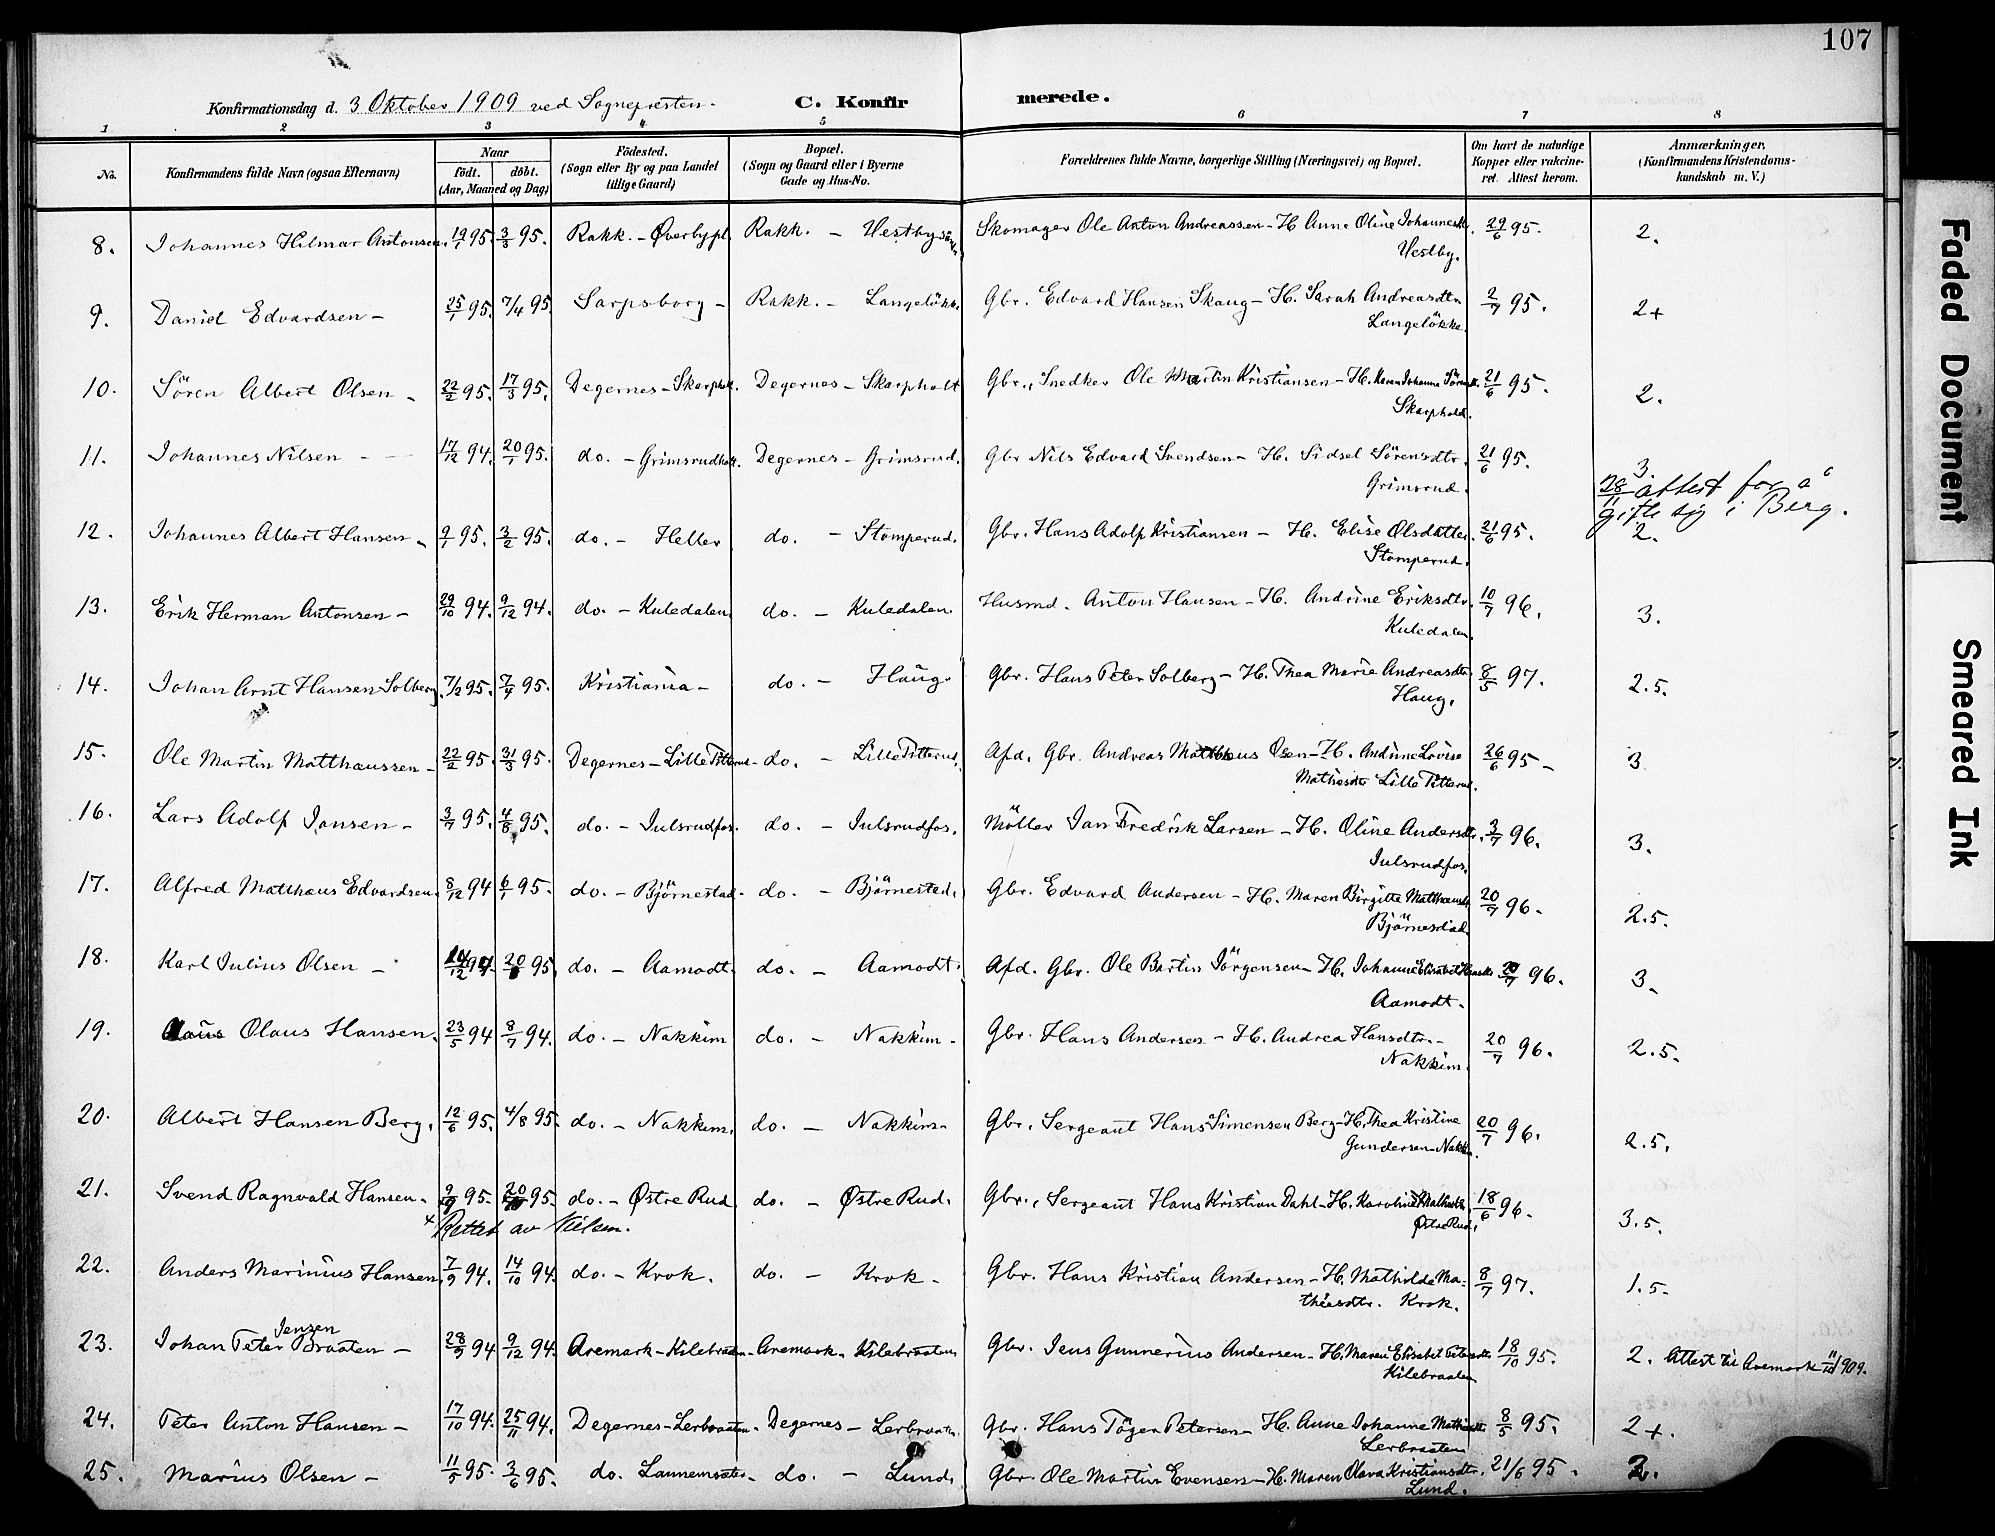 107
Konfirmationsdag d. 3 Oktober 1909 ved Sognepresten. C. Konfirmerede.
1 2 3 4 5 6 7 8
No. Konfirmandens fulde Navn (ogsaa Efternavn) Naar født. døbt. (Aar, Maaned og Dag) Fødested. (Sogn eller By og paa Landet tillige Gaard) Bopæl. (Sogn og Gaard eller i Byerne Gade og Hus-No. Forældrenes fulde Navne, borgerlige Stilling (Næringsvei) og Bopæl. Om havt de naturlige Kopper eller vaccineret. Attest herom. Anmærkninger, (Konfirmandens Kristendomskundskab m. V.)
8. Johannes Hilmar Antonsen. 19/1 95. 3/3 95. Rakk. - Øverbypl. Rakk. - Vestby Skomager Ole Anton Andreassen - H. Anne Oline 29/6 95. 2.
Vestby.
9. Daniel Edvardsen - 25/1 95. 7/4 95. Sarpsborg - Rakk. - Langeløkk. Gbr. Edvard Hansen Skaug - H. Sarah Andreasdtr 2/7 95. 2+
Langeløkke.
10. Sören Albert Olsen - 22/2 95. 17/3 95. Degernes - Skarpholt. Degernes - Skarpholt Gbr., Snedker Ole Martin Kristiansen - H. Maren Johanne 21/6 95. 2.
Skarpholt.
11. Johannes Nilsen - 17/12 94. 20/1 95. do. - Grimsrudholt. Degernes - Grimsrud. Gbr Nils Edvard Svendsen - H. Sidsel Sörensdtr. 21/6 95. 3.
Grimsrud.
28/11 attest for å
gifte sig i Berg.
12. Johannes Albert Hansen - 9/1 95. 3/2 95. do. - Heller do. - Stomperud. Gbr. Hans Adolf Kristiansen - H. Elise Olsdatter. 21/6 95. 2.
Stomperud.
13. Erik Herman Antonsen - 29/10 94. 9/12 94. do. - Kuledalen do. - Kuledalen. Husmd. Anton Hansen - H. Andrine Eriksdtr. 10/7 96. 3.
Kuledalen.
14. Johan Arnt Hansen Solberg. 7/2 95. 7/4 95. Kristiania - do. - Haug. Gbr. Hans Peter Solberg - H. Thea Marie Andreasdtr 8/5 97. 2.5.
Haug.
15. Ole Martin Matthæussen - 22/2 95. 31/3 95. Degernes - Lille Titterud - do. - Lille Titterud. Afd. Gbr. Andreas Mathæus Osen - H. Andrine Lovise 26/6 95 - 3
Mathisdtr Lille Titterud.
16. Lars Adolf Jansen - 3/7 95. 4/8 95. do. - Julsrudfos. do. - Julsrudfos. Möller Jan Fredrik Larsen - H. Oline Andersdtr. 3/7 96. 3.
Julsrudfos.
17. Alfred Matthæus Edvardsen. 8/12 94 6/1 95. do. - Björnestad - do. - Björnestad. Gbr. Edvard Andersen - H. Maren Birgitte 20/7 96. 2.5.
Björnestad.
18. Karl Julius Olsen - 14/12 94 20/ 95. do. - Aamodt. do. - Aamodt. Afd. Gbr. Ole Bertin Jörgensen - H. Johanne Elisabet 20/7 96. 3.
Aamodt.
19. Olaus Hansen. 23/5 94 8/7 94. do. - Nakkim do. - Nakkim - Gbr. Hans Andersen - H. Andrea Hansdtr. - 20/7 96. 2.5.
Nakkim.
20. Albert Hansen Berg. 12/6 95. 4/8 95. do. - Nakkim. do. - Nakkim - Gbr. Sergeant Hans Simensen Berg - H. Thea Kristine 20/7 96. 2.5.
Gundersen - Nakk.
21. Svend Ragnvald Hansen. 9/9 95. 20/10 95. do. - Østre Rud do. - Østre Rud. Gbr., Sergeant Hans Kristian Dahl - H. Karoline 18/6 96. 3.5.
Østre Rud.
+ Rettet av Nilsen.
22. Anders Marinius Hansen. 7/9 94. 14/10 94. do. - Krok. do. - Krok - Gbr. Hans Kristian Andersen - H. Mathilde Ma- 8/7 97. 1.5.
theasdtr. Krok.
Jensen
23. Johan Peter Braaten - 28/9 94 9/12 94. Aremark - Kilebraaten - Aremark. Kilebraaten Gbr. Jens Gunnerius Andersen - H. Maren Elisabet 18/10 95. 2. Attest til Aremark 11/10 1909.
Kilebraaten
24. Peter Anton Hansen - 17/10 94. 25/11 94. Degernes - Lerbraaten - Degernes - Lerbraaten. Gbr. Hans Töger Petersen - H. Anne Johanne 8/5 95. 2+.
Lerbraaten
25. Marius Olsen - 11/5 95. 3/6 95. do. do. - Lund. Gbr. Ole Martin Evensen - H. Maren Olava Kristiansdtr. 21/6 95. 2.
Lund.
Faded Document
Smeared Ink